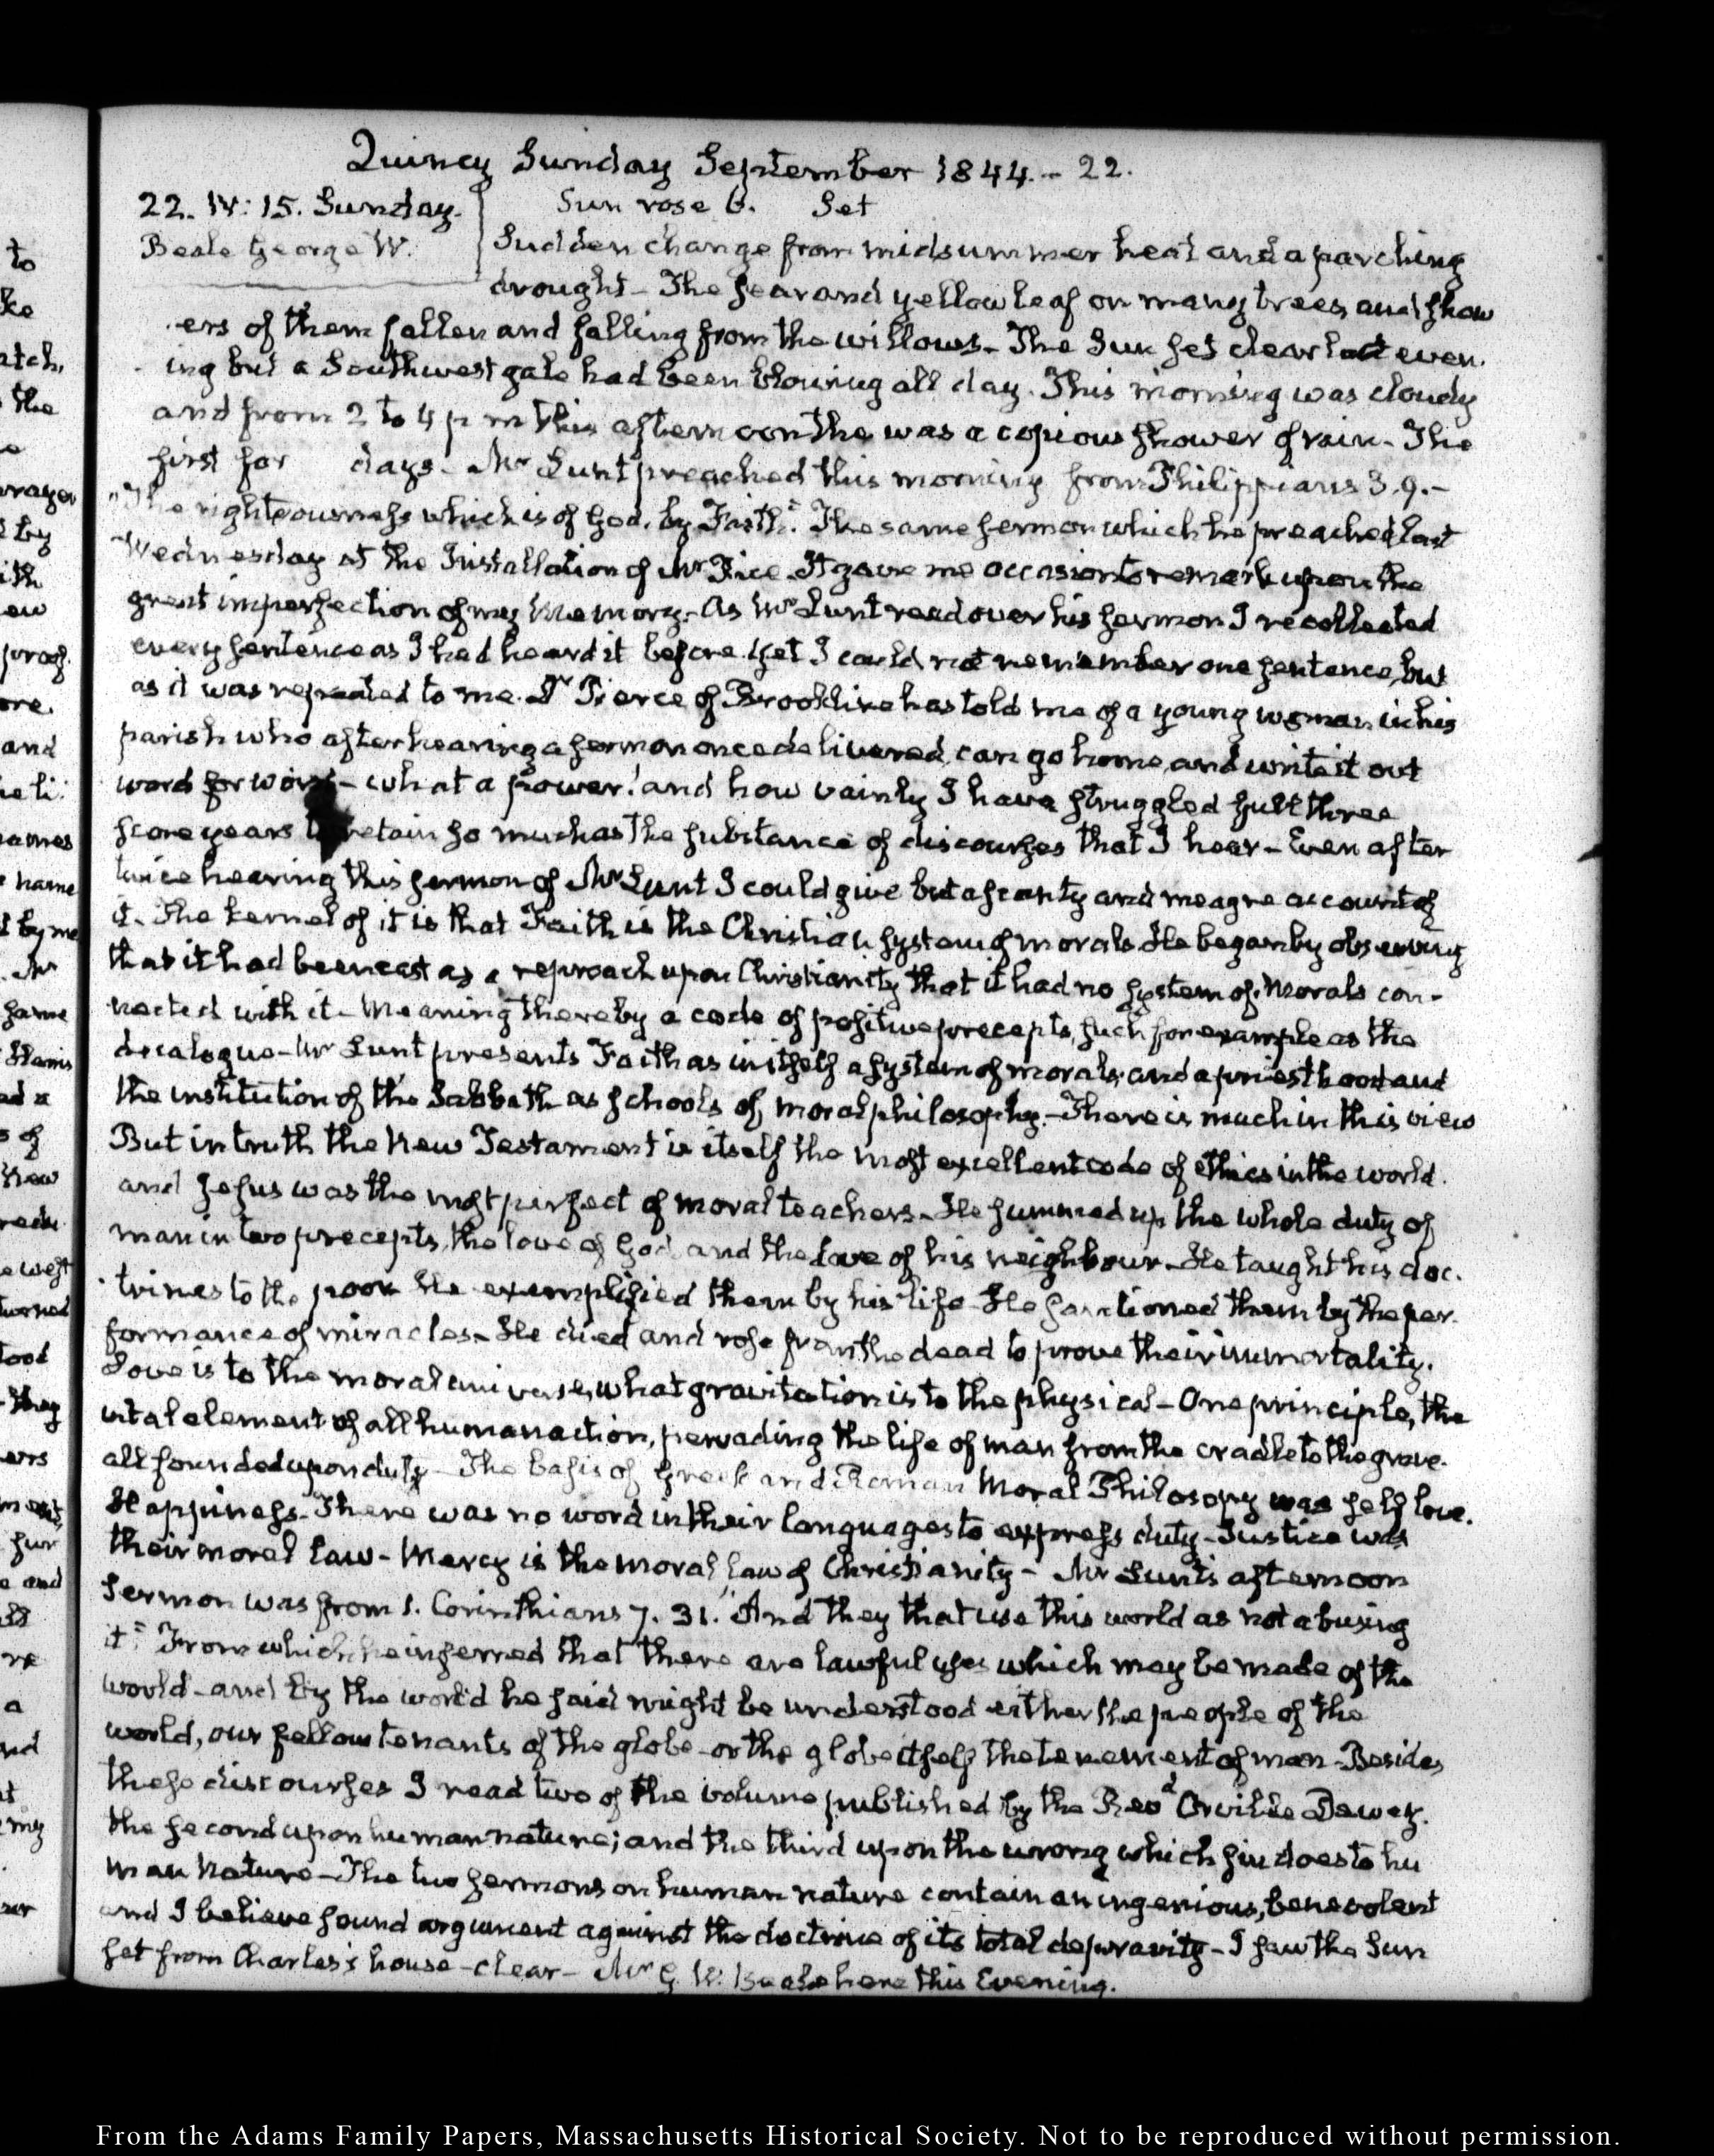 Quincy Sunday September 1844.- 22.
22. IV: 15. Sunday.
Beale George W.
Sun rose 6. Set
Sudden change from midsummer heat and a parching
drought- The sear and yellow leaf on many trees, and show
ers of them fallen and falling from the willows- The Sun set clear last even.
ing but a Southwest gale had been blowing all day. This morning was cloudy
and from 2 to 4 p m this afternoon the was a copious shower of rain- The
first for days- Mr Lunt preached this morning from Philippians 3.9.-
"The righteousness which is of God, by Faith." The same sermon which he preached last
Wednesday at the Installation of Mr Fice. It gave me occasion to remark upon the
great imperfection of my Memory. As Mr Lunt read over his sermon I recollected
every sentence as I had heard it before. Yet I could not remember one sentence, but
as it was repeated to me. Dr Pierce of Brookline has told me of a young woman in his
parish who after hearing a sermon once delivered, can go home, and write it out
word for word- what a power! and how vainly I have struggled full three
score years to retain so much as the substance of discourses that I hear- Even after
twice hearing this sermon of Mr Lunt I could give but a scanty and meagre account of
it- The kernel of it is that Faith is the Christian system of morals. He began by observing
that it had been cast as a reproach upon Christianity that it had no system of Morals con-
nected with it- Meaning thereby a code of positive precepts, such for example as the
decalogue- Mr Lunt presents Faith as in itself a system of morals, and a priesthood and
the institution of the Sabbath as schools of moral philosophy.- There is much in this view
But in truth the New Testament is itself the most excellent code of ethics in the world.
and Jesus was the most perfect of moral teachers- He summed up the whole duty of
man in two precepts, the love of God, and the love of his neighbour- He taught his doc.
trines to the poor He exemplified them by his life- He sanctioned them by the per.
formance of miracles- He died and rose from the dead to prove their immortality.
Love is to the moral universe, what gravitation is to the physical- One principle, the
vital element of all human action, pervading the life of man from the cradle to the grave.
all founded upon duty- The basis of Greek and Roman Moral Philosopy was self love.
Happiness- There was no word in their languages to express duty- Justice was
their moral law- Mercy is the moral law of Christianity- Mr Lunt's afternoon
Sermon was from 1. Corinthians 7. 31. "And they that use this world as not abusing
it" From which he inferred that there are lawful uses which may be made of the
world- and by the world he said might be understood either the people of the
world, our fellow tenants of the globe- or the globe itself the tenement of man- Besides
these discourses I read two of the volume published by the Revd Orville Dewey.
the second upon human nature; and the third upon the wrong which sin does to hu
man Nature- The two sermons on human nature contain an ingenious, benevolent
and I believe sound argument against the doctrine of its total depravity- I saw the Sun
set from Charles's house- clear- Mr G. W. Beale here this Evening.
From the Adams Family Papers, Massachusetts Historical Society. Not to be reproduced without permission.